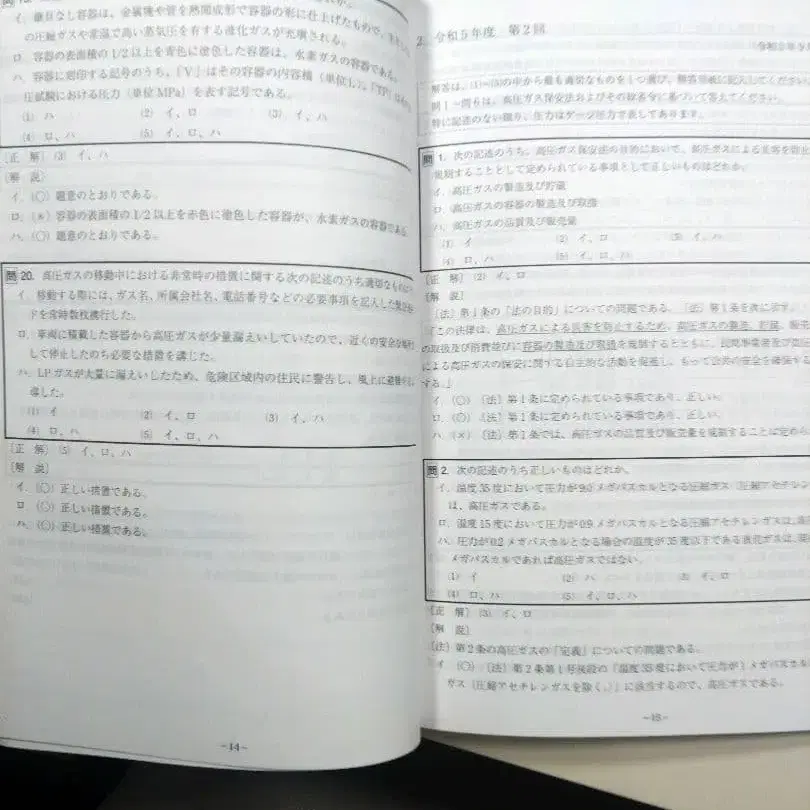 イ. 継目なし容器は、金属塊や管を熱間成形で容器の形に仕上げたもので、主として
の圧縮ガスや常温で高い蒸気圧を有する液化ガスが充填される。
ロ. 容器の表面積の1/2以上を青色に塗色した容器は、水素ガスの容器である。
ハ. 容器に刻印する記号のうち、「V」はその容器の内容積（単位L）、「TP」は
圧試験における圧力（単位MPa）を表す記号である。
(1) ハ (2) イ、ロ (3) イ、ハ
(4) ロ、ハ (5) イ、ロ、ハ
[正 解] (3) イ、ハ
[解 説]
イ. (○) 題意のとおりである。
ロ. (×) 容器の表面積の1/2以上を赤色に塗色した容器が、水素ガスの容器である。
ハ. (○) 題意のとおりである。
問20. 高圧ガスの移動中における非常時の措置に関する次の記述のうち適切なものは
イ. 移動する際には、ガス名、所属会社名、電話番号などの必要事項を記入した
ドを常時数枚携行した。
ロ. 車両に積載した容器から高圧ガスが少量漏えいしていたので、近くの安全な
して停止したのち必要な措置を講じた。
ハ. LPガスが大量に漏えいしたため、危険区域内の住民に警告し、風上に避難
導した。
(1) イ (2) イ、ロ (3) イ、ハ
(4) ロ、ハ (5) イ、ロ、ハ
[正 解] (5) イ、ロ、ハ
[解 説]
イ. (○) 正しい措置である。
ロ. (○) 正しい措置である。
ハ. (○) 正しい措置である。
-14-
2. 令和5年度 第2回
解答は、(1)~(5)の中から最も適切なものを1つ選び、解答用紙に記入してください。
問1~問9は、高圧ガス保安法およびその政省令に基づいて答えてください。
特に記述のない限り、圧力はゲージ圧力で表してあります。
問1. 次の記述のうち、高圧ガス保安法の目的において、高圧ガスによる災害を防止
規制することとして定められている事項として正しいものはどれか。
イ. 高圧ガスの製造及び貯蔵
ロ. 高圧ガスの容器の製造及び取扱
ハ. 高圧ガスの品質及び販売量
(1) イ (2) イ、ロ (3) イ、ハ
(4) ロ、ハ (5) イ、ロ、ハ
[正 解] (2) イ、ロ
[解 説]
〔法〕第1条の「法の目的」についての問題である。〔法〕第1条を次に示す。
「この法律は、高圧ガスによる災害を防止するため、高圧ガスの製造、貯蔵、販売
の取扱及び消費並びに容器の製造及び取扱を規制するとともに、民間事業者及び高圧
による高圧ガスの保安に関する自主的な活動を促進し、もって公共の安全を確保する
する。」
イ (○)〔法〕第1条に定められている事項であり、正しい。
ロ (○)〔法〕第1条に定められている事項であり、正しい。
ハ (×)〔法〕第1条では、高圧ガスの品質及び販売量を規制することは定めら
問2. 次の記述のうち正しいものはどれか。
イ. 温度35度において圧力が9.0メガパスカルとなる圧縮ガス（圧縮アセチレン
は、高圧ガスである。
ロ. 温度15度において圧力が0.9メガパスカルとなる圧縮アセチレンガスは、高
ハ. 圧力が0.2メガパスカルとなる場合の温度が35度以下である液化ガスは、現
メガパスカルであれば高圧ガスではない。
(1) イ (2) ハ (3) イ、ロ
(4) ロ、ハ (5) イ、ロ、ハ
[正 解] (3) イ、ロ
[解 説]
〔法〕第2条の高圧ガスの「定義」についての問題である。
イ (○)〔法〕第2条第1号後段の「温度35度において圧力が1メガパスカル
ガス（圧縮アセチレンガスを除く。）」に該当するので、高圧ガスである。
-15-